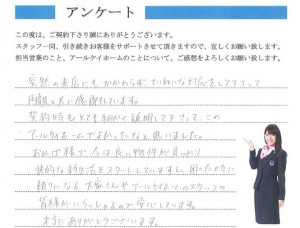 アンケート
この度は、ご契約下さり誠にありがとうございます。
スタッフ一同、引き続きお客様をサポートさせて頂きますので、宜しくお願い致します。
担当営業のこと、アールケイホームのことについて、ご感想をよろしくお願い致します。
突然の来店にもかかわらずていねいな対応をして下さって
両親と共に感謝しています。
契約時もとても細かく説明して下さって、この
アールケイホームでよかったなと思いました。
おかげ様で今は良い物件が見つかり
快的な新生活をスタートしています。困った時に
頼りになる大家さんやアールケイホームのスタッフの
皆様がいらっしゃるので安心しています。
本当にありがとうございます。